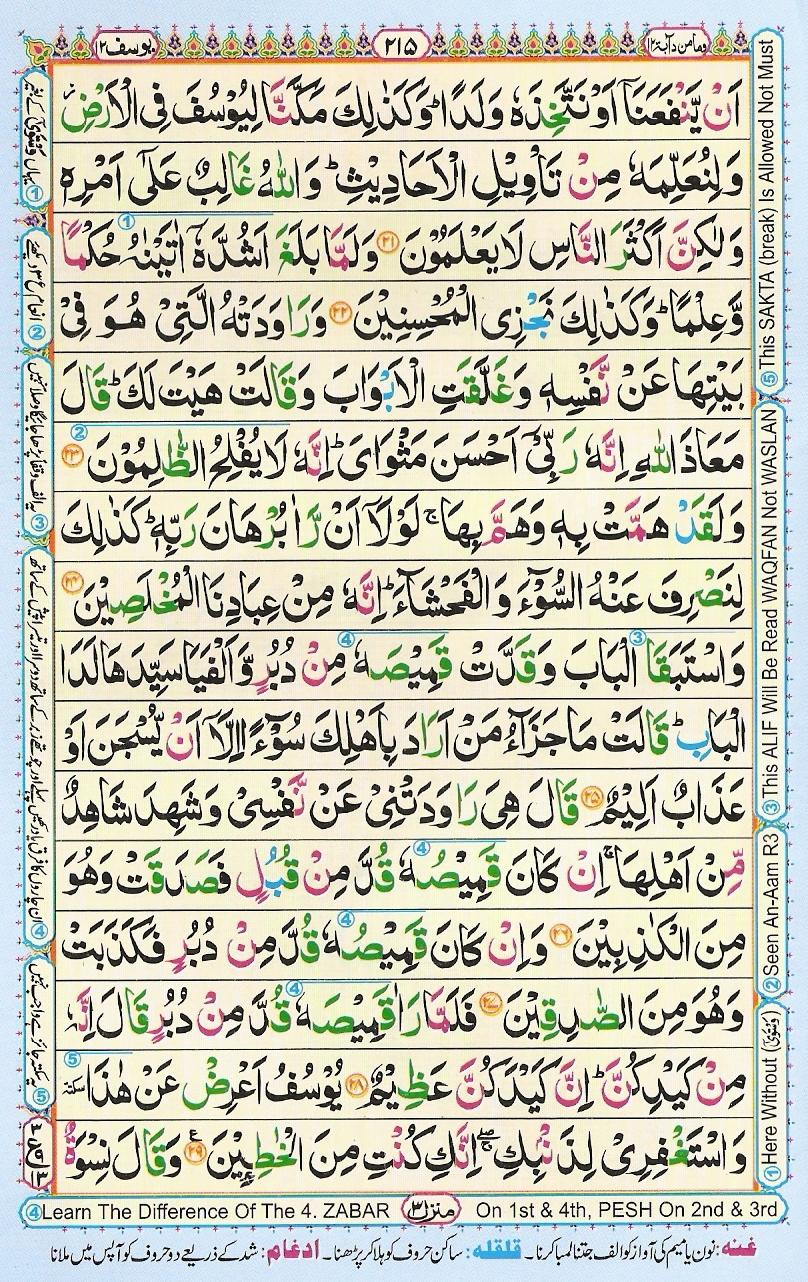 وما من دآبة ۱۲
۲۱۵
یوسف ۱۲
اَنْ یَّنْفَعَنَاۤ اَوْ نَتَّخِذَهٗ وَلَدًا ؕ وَكَذٰلِكَ مَكَّنَّا لِیُوْسُفَ فِی الْاَرْضِ ؗ
وَلِنُعَلِّمَهٗ مِنْ تَاْوِیْلِ الْاَحَادِیْثِ ؕ وَاللّٰهُ غَالِبٌ عَلٰۤی اَمْرِهٖ
وَلٰكِنَّ اَكْثَرَ النَّاسِ لَا یَعْلَمُوْنَ ۲۱ وَلَمَّا بَلَغَ اَشُدَّهٗۤ اٰتَیْنٰهُ حُكْمًا
وَّعِلْمًا ؕ وَكَذٰلِكَ نَجْزِی الْمُحْسِنِیْنَ ۲۲ وَرَاوَدَتْهُ الَّتِیْ هُوَ فِیْ
بَیْتِهَا عَنْ نَّفْسِهٖ وَغَلَّقَتِ الْاَبْوَابَ وَقَالَتْ هَیْتَ لَكَ ؕ قَالَ
مَعَاذَ اللّٰهِ اِنَّهٗ رَبِّیْۤ اَحْسَنَ مَثْوَایَ ؕ اِنَّهٗ لَا یُفْلِحُ الظّٰلِمُوْنَ ۲۳
وَلَقَدْ هَمَّتْ بِهٖ وَهَمَّ بِهَا ۚ لَوْلَاۤ اَنْ رَّاٰ بُرْهَانَ رَبِّهٖ ؕ كَذٰلِكَ
لِنَصْرِفَ عَنْهُ السُّوْٓءَ وَالْفَحْشَآءَ ؕ اِنَّهٗ مِنْ عِبَادِنَا الْمُخْلَصِیْنَ ۲۴
وَاسْتَبَقَا الْبَابَ وَقَدَّتْ قَمِیْصَهٗ مِنْ دُبُرٍ وَّاَلْفَیَا سَیِّدَهَا لَدَا
الْبَابِ ؕ قَالَتْ مَا جَزَآءُ مَنْ اَرَادَ بِاَهْلِكَ سُوْٓءًا اِلَّاۤ اَنْ یُّسْجَنَ اَوْ
عَذَابٌ اَلِیْمٌ ۲۵ قَالَ هِیَ رَاوَدَتْنِیْ عَنْ نَّفْسِیْ وَشَهِدَ شَاهِدٌ
مِّنْ اَهْلِهَا ۚ اِنْ كَانَ قَمِیْصُهٗ قُدَّ مِنْ قُبُلٍ فَصَدَقَتْ وَهُوَ
مِنَ الْكٰذِبِیْنَ ۲۶ وَاِنْ كَانَ قَمِیْصُهٗ قُدَّ مِنْ دُبُرٍ فَكَذَبَتْ
وَهُوَ مِنَ الصّٰدِقِیْنَ ۲۷ فَلَمَّا رَاٰ قَمِیْصَهٗ قُدَّ مِنْ دُبُرٍ قَالَ اِنَّهٗ
مِنْ كَیْدِكُنَّ ؕ اِنَّ كَیْدَكُنَّ عَظِیْمٌ ۲۸ یُوْسُفُ اَعْرِضْ عَنْ هٰذَا سكتة
وَاسْتَغْفِرِیْ لِذَنْۢبِكِ ۖۚ اِنَّكِ كُنْتِ مِنَ الْخٰطِـِٕیْنَ ۲۹ ع وَقَالَ نِسْوَةٌ
⑤ This SAKTA (break) Is Allowed Not Must
③ This ALIF Will Be Read WAQFAN Not WASLAN
② Seen An-Aam R3
① Here Without (وَسْتَوٰی)
④ Learn The Difference Of The 4. ZABAR
منزل ۳
On 1st & 4th, PESH On 2nd & 3rd
غنہ: نون یا میم کی آواز کو الف جتنا لمبا کرنا۔ قلقلہ: ساکن حروف کو ہلا کر پڑھنا۔ ادغام: شد کے ذریعے دو حروف کو آپس میں ملانا